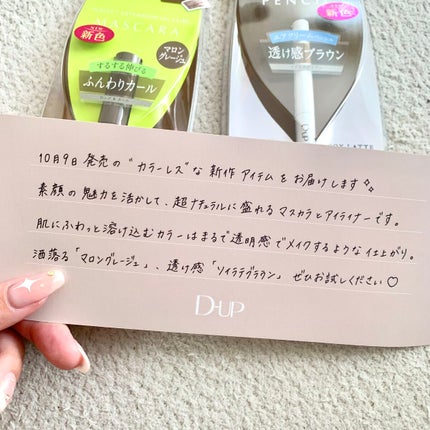 MASCARA
新色
マロン
グレージュ
するする伸びる
ふんわりカール
PENCIL
新色
エアクリームペンシル
透け感ブラウン
10月9日発売の"カラーレス"な新作アイテムをお届けします✧˖
素顔の魅力を活かして、超ナチュラルに盛れるマスカラとアイライナーです。
肌にふわっと溶け込むカラーはまるで透明感でメイクするような仕上がり。
洒落る「マロングレージュ」、透け感「ソイラテブラウン」ぜひお試しください♡
D-UP